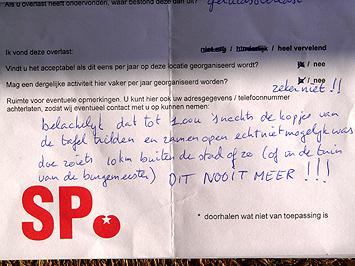 Als u overlast heeft ondervonden, waar bestond deze dan uit?
geluidsoverlast
Ik vond deze overlast: niet erg / hinderlijk / heel vervelend
Vindt u het acceptabel als dit eens per jaar op deze locatie georganiseerd wordt? ja / nee
Mag een dergelijke activiteit hier vaker per jaar georganiseerd worden? ja / nee
zeker niet !!
Ruimte voor eventuele opmerkingen. U kunt hier ook uw adresgegevens / telefoonnummer
achterlaten, zodat wij eventueel contact met u op kunnen nemen:
belachelijk dat tot 1.00u snachts de kopjes van
de tafel trilden en ramen open echt niet mogelijk was
doe zoiets 10 km buiten de stad of zo (of in de tuin
van de burgemeester) DIT NOOIT MEER !!!
SP.
* doorhalen wat niet van toepassing is